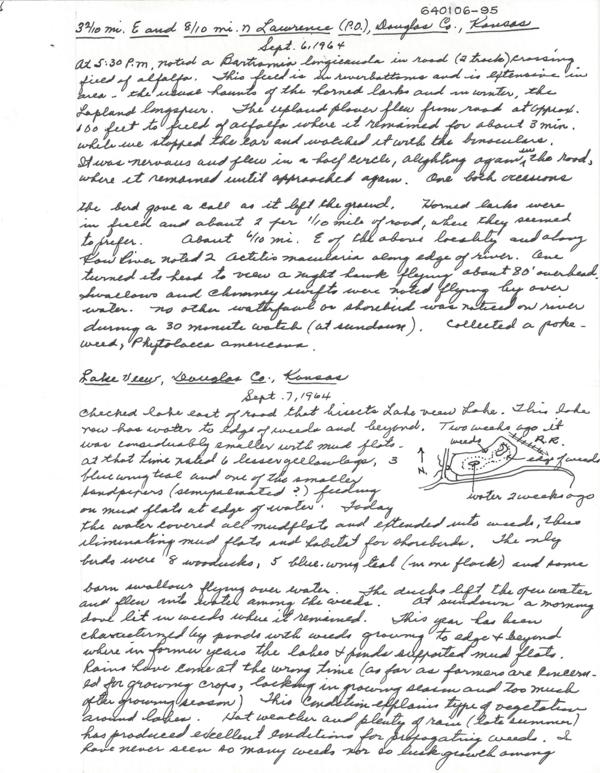 640106-95
3 2/10 mi. E and 8/10 mi. N Lawrence (P.O.), Douglas Co., Kansas
Sept. 6, 1964
At 5:30 P.M. noted a Bartramia longicauda in road (2 tracks) crossing
field of alfalfa. This field is in riverbottoms and is extensive in
area - the usual haunts of the horned larks and in winter, the
Lapland longspur. The upland plover flew from road at approx.
100 feet to field of alfalfa where it remained for about 3 min.
while we stopped the car and watched it with the binoculars.
It was nervous and flew in a half circle, alighting again in the road,
where it remained until approached again. One both occasions
the bird gave a call as it left the ground. Horned larks were
in field and about 2 per 1/10 mile of road, where they seemed
to prefer. About 4/10 mi. E of the above locality and along
Kaw River noted 2 Actitis macularia along edge of river. One
turned its head to view a night hawk flying about 80' overhead.
Swallows and chimney swifts were noted flying by over
water. No other waterfowl or shorebird was noticed on river
during a 30 minute watch (at sundown). Collected a poke-
weed, Phytolacca americana.
Lake View, Douglas Co., Kansas
Sept. 7, 1964
Checked lake east of road that bisects Lake View Lake. This lake
now has water to edge of weeds and beyond. Two weeks ago it
was considerably smaller with mud flats.
At that time noted 6 lesser yellowlegs, 3
blue wing teal and one of the smaller
sandpipers (semipalmated ?) feeding
on mud flats at edge of water. Today
weeds
R.R.
N.
edge of weeds
water 2 weeks ago
the water covered all mudflats and extended into weeds, thus
eliminating mud flats and habitat for shorebirds. The only
birds were 8 woodducks, 5 blue-wing teal (in one flock) and some
barn swallows flying over water. The ducks left the open water
and flew into water among the weeds. At sundown a morning
dove lit in weeds where it remained. This year has been
characterized by ponds with weeds growing to edge & beyond
where in former years the lakes & ponds supported mud flats.
Rains have come at the wrong time (as far as farmers are concern-
ed for growing crops, lacking in growing season and too much
after growing season) This condition explains type of vegetation
around lakes. Hot weather and plenty of rain (late summer)
has produced excellent conditions for propagating weeds. I
have never seen so many weeds nor so lush growth among